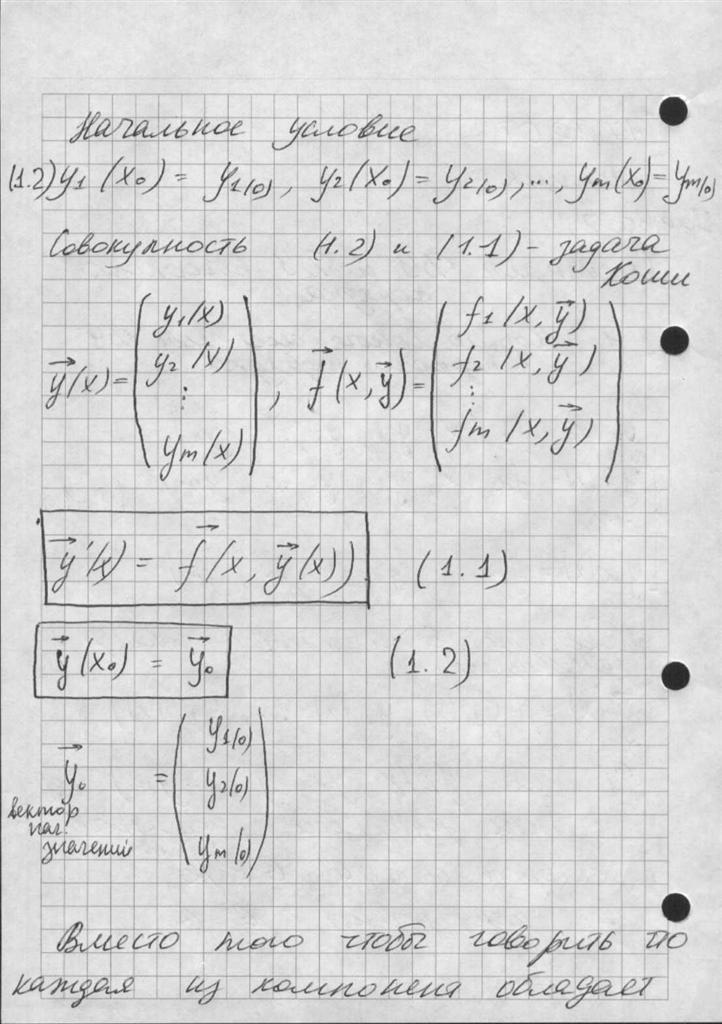 Начальное условие
(1.2) y₁(x₀) = y₁₍₀₎, y₂(x₀) = y₂₍₀₎, ..., yₘ(x₀) = yₘ₍₀₎
Совокупность (1.2) и (1.1) - задача
Коши
y⃗(x) = ( y₁(x) y₂(x) ⋮ yₘ(x) ), f⃗(x, y⃗) = ( f₁(x, y⃗) f₂(x, y⃗) ⋮ fₘ(x, y⃗) )
y⃗'(x) = f⃗(x, y⃗(x)) (1.1)
y⃗(x₀) = y⃗₀ (1.2)
y⃗₀ = ( y₁₍₀₎ y₂₍₀₎ yₘ₍₀₎ )
вектор
нач.
значений
Вместо того чтобы говорить что
каждая из компонент обладает